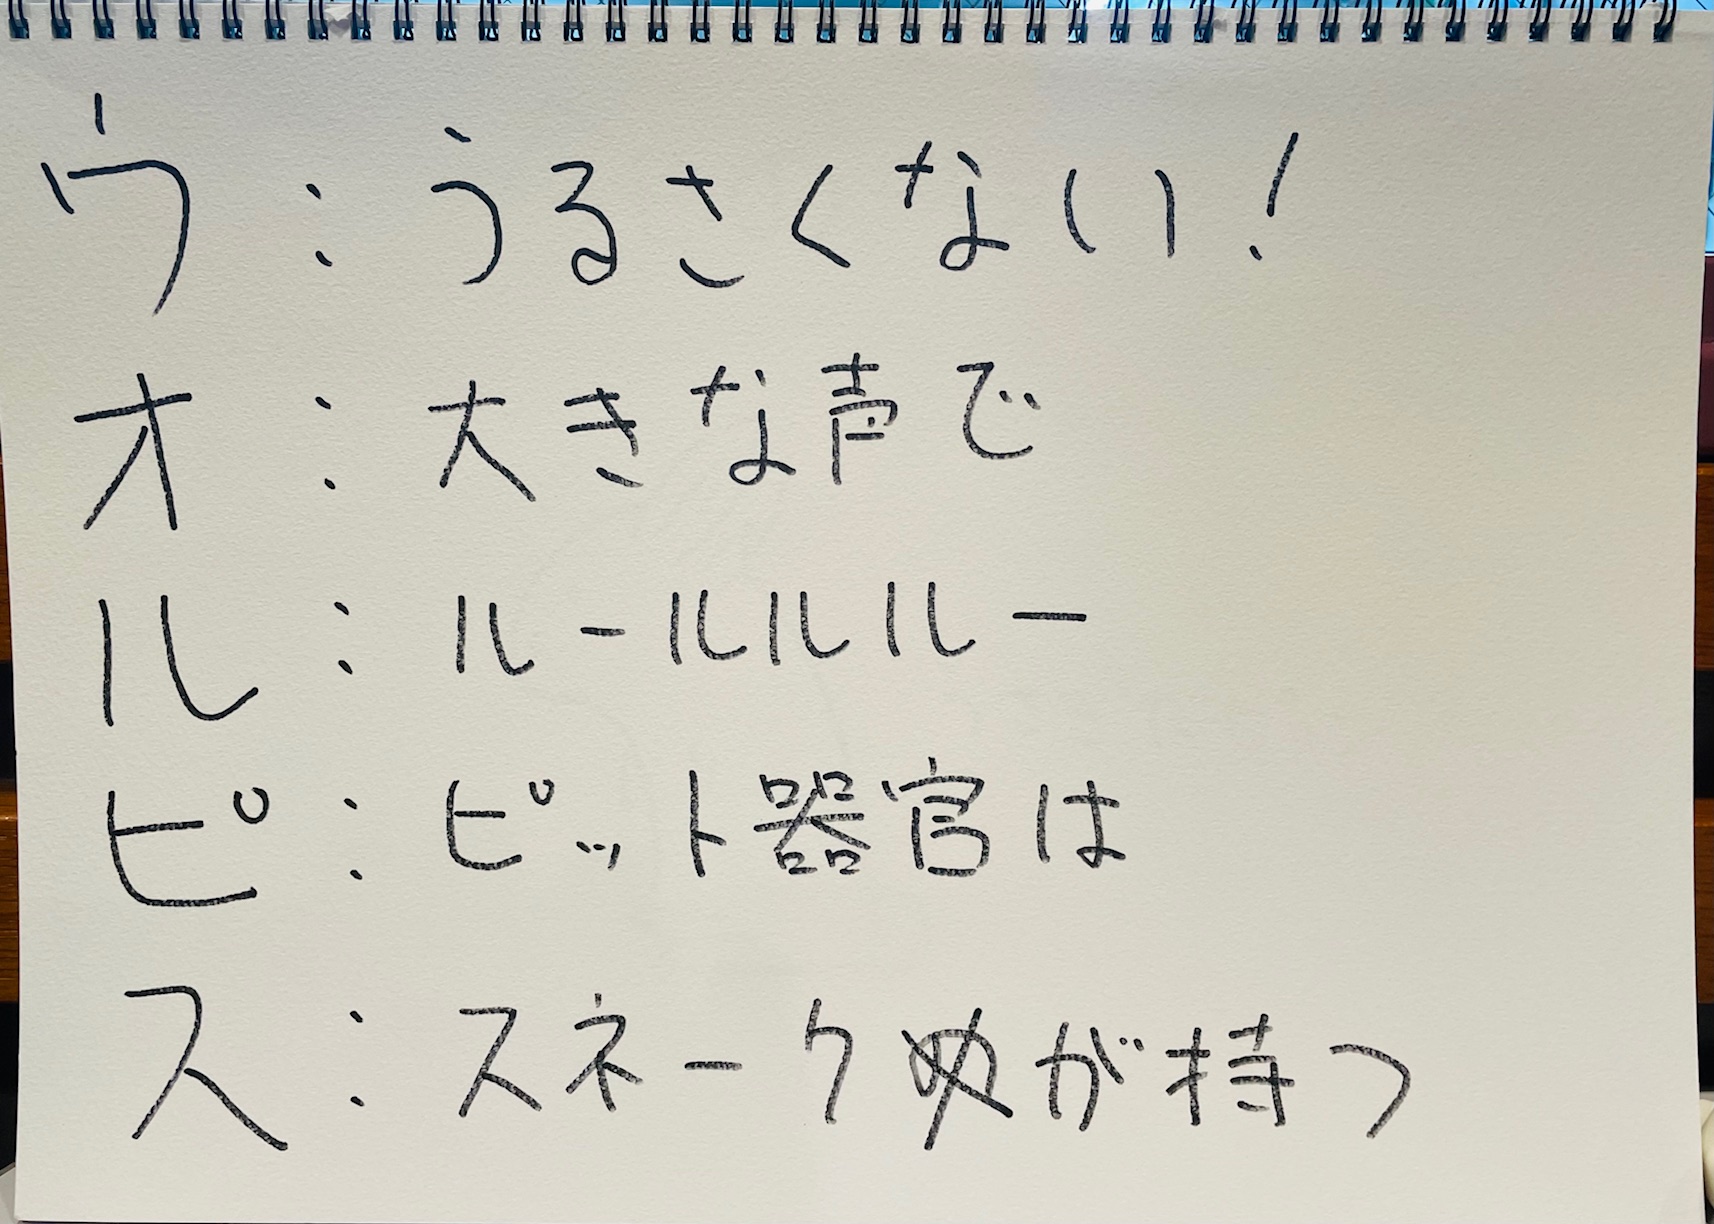 ウ：うるさくない！
オ：大きな声で
ル：ルールルルー
ピ：ピット器官は
ス：スネークが持つ